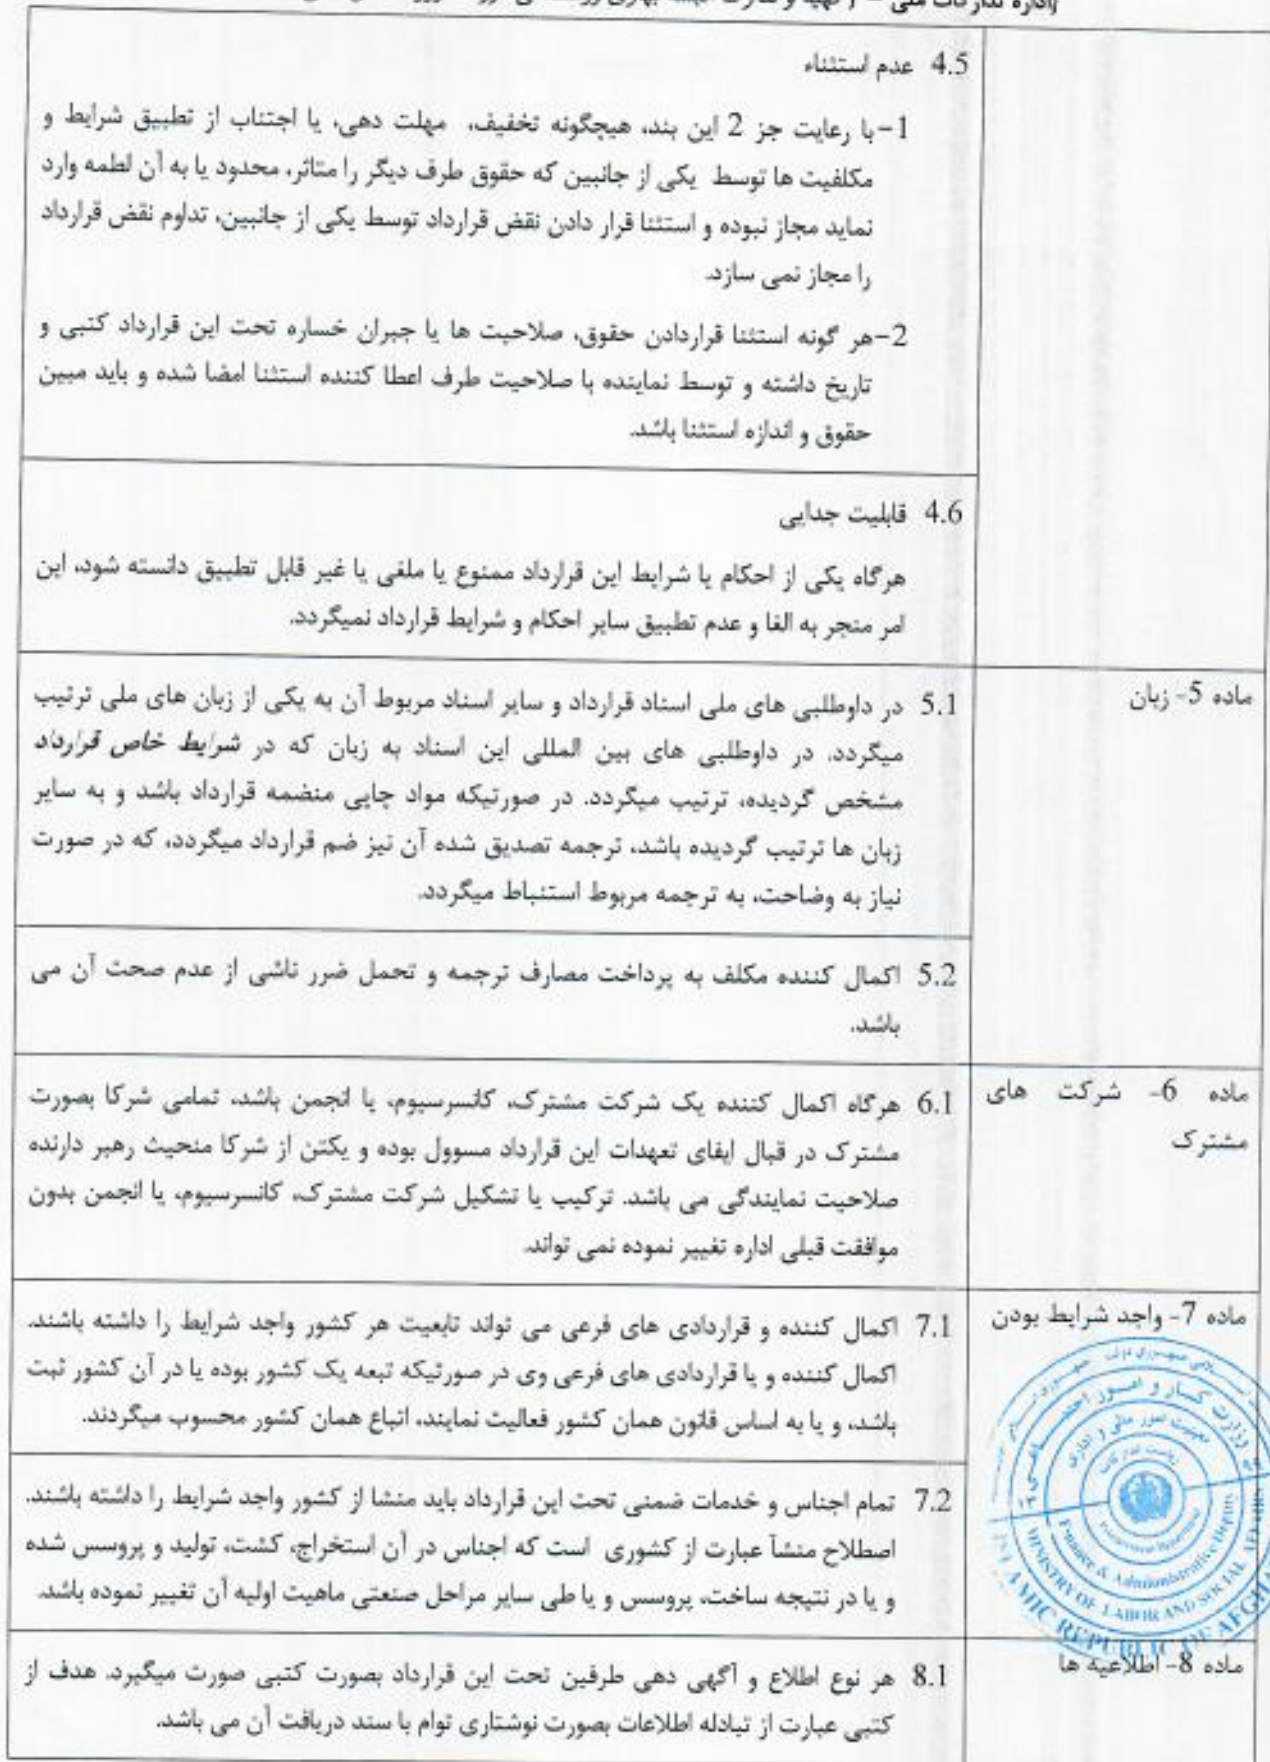 4.5 عدم استثناء
1-با رعایت جز 2 این بند، هیچگونه تخفیف، مهلت دهی، یا اجتناب از تطبیق شرایط و
مکلفیت ها توسط یکی از جانبین که حقوق طرف دیگر را متاثر، محدود یا به آن لطمه وارد
نماید مجاز نبوده و استثنا قرار دادن نقض قرارداد توسط یکی از جانبین، تداوم نقض قرارداد
را مجاز نمی سازد.
2-هر گونه استثنا قراردادن حقوق، صلاحیت ها یا جبران خساره تحت این قرارداد کتبی و
تاریخ داشته و توسط نماینده با صلاحیت طرف اعطا کننده استثنا امضا شده و باید مبین
حقوق و اندازه استثنا باشد.
4.6 قابلیت جدایی
هرگاه یکی از احکام یا شرایط این قرارداد ممنوع یا ملغی یا غیر قابل تطبیق دانسته شود، این
امر منجر به الغا و عدم تطبیق سایر احکام و شرایط قرارداد نمیگردد.
ماده 5- زبان
5.1 در داوطلبی های ملی اسناد قرارداد و سایر اسناد مربوط آن به یکی از زبان های ملی ترتیب
میگردد. در داوطلبی های بین المللی این اسناد به زبان که در شرایط خاص قرارداد
مشخص گردیده، ترتیب میگردد. در صورتیکه مواد چاپی منضمه قرارداد باشد و به سایر
زبان ها ترتیب گردیده باشد، ترجمه تصدیق شده آن نیز ضم قرارداد میگردد، که در صورت
نیاز به وضاحت، به ترجمه مربوط استنباط میگردد.
5.2 اکمال کننده مکلف به پرداخت مصارف ترجمه و تحمل ضرر ناشی از عدم صحت آن می
باشد.
ماده 6- شرکت های
مشترک
6.1 هرگاه اکمال کننده یک شرکت مشترک، کانسرسیوم، یا انجمن باشد، تمامی شرکا بصورت
مشترک در قبال ایفای تعهدات این قرارداد مسوول بوده و یکتن از شرکا منحیث رهبر دارنده
صلاحیت نمایندگی می باشد. ترکیب یا تشکیل شرکت مشترک، کانسرسیوم، یا انجمن بدون
موافقت قبلی اداره تغییر نموده نمی تواند.
ماده 7- واجد شرایط بودن
7.1 اکمال کننده و قراردادی های فرعی می تواند تابعیت هر کشور واجد شرایط را داشته باشند.
اکمال کننده و یا قراردادی های فرعی وی در صورتیکه تبعه یک کشور بوده یا در آن کشور ثبت
باشد، و یا به اساس قانون همان کشور فعالیت نمایند، اتباع همان کشور محسوب میگردند.
7.2 تمام اجناس و خدمات ضمنی تحت این قرارداد باید منشا از کشور واجد شرایط را داشته باشند.
اصطلاح منشآ عبارت از کشوری است که اجناس در آن استخراج، کشت، تولید و پروسس شده
و یا در نتیجه ساخت، پروسس و یا طی سایر مراحل صنعتی ماهیت اولیه آن تغییر نموده باشد.
وزارت کار و امور
معینیت امور مالی و اداری
ریاست تدارکات
Finance & Administrative
MINISTRY OF LABOR AND SOCIAL AFFAIRS
ISLAMIC REPUBLIC OF
ماده 8- اطلاعیه ها
8.1 هر نوع اطلاع و آگهی دهی طرفین تحت این قرارداد بصورت کتبی صورت میگیرد. هدف از
کتبی عبارت از تبادله اطلاعات بصورت نوشتاری توام با سند دریافت آن می باشد.